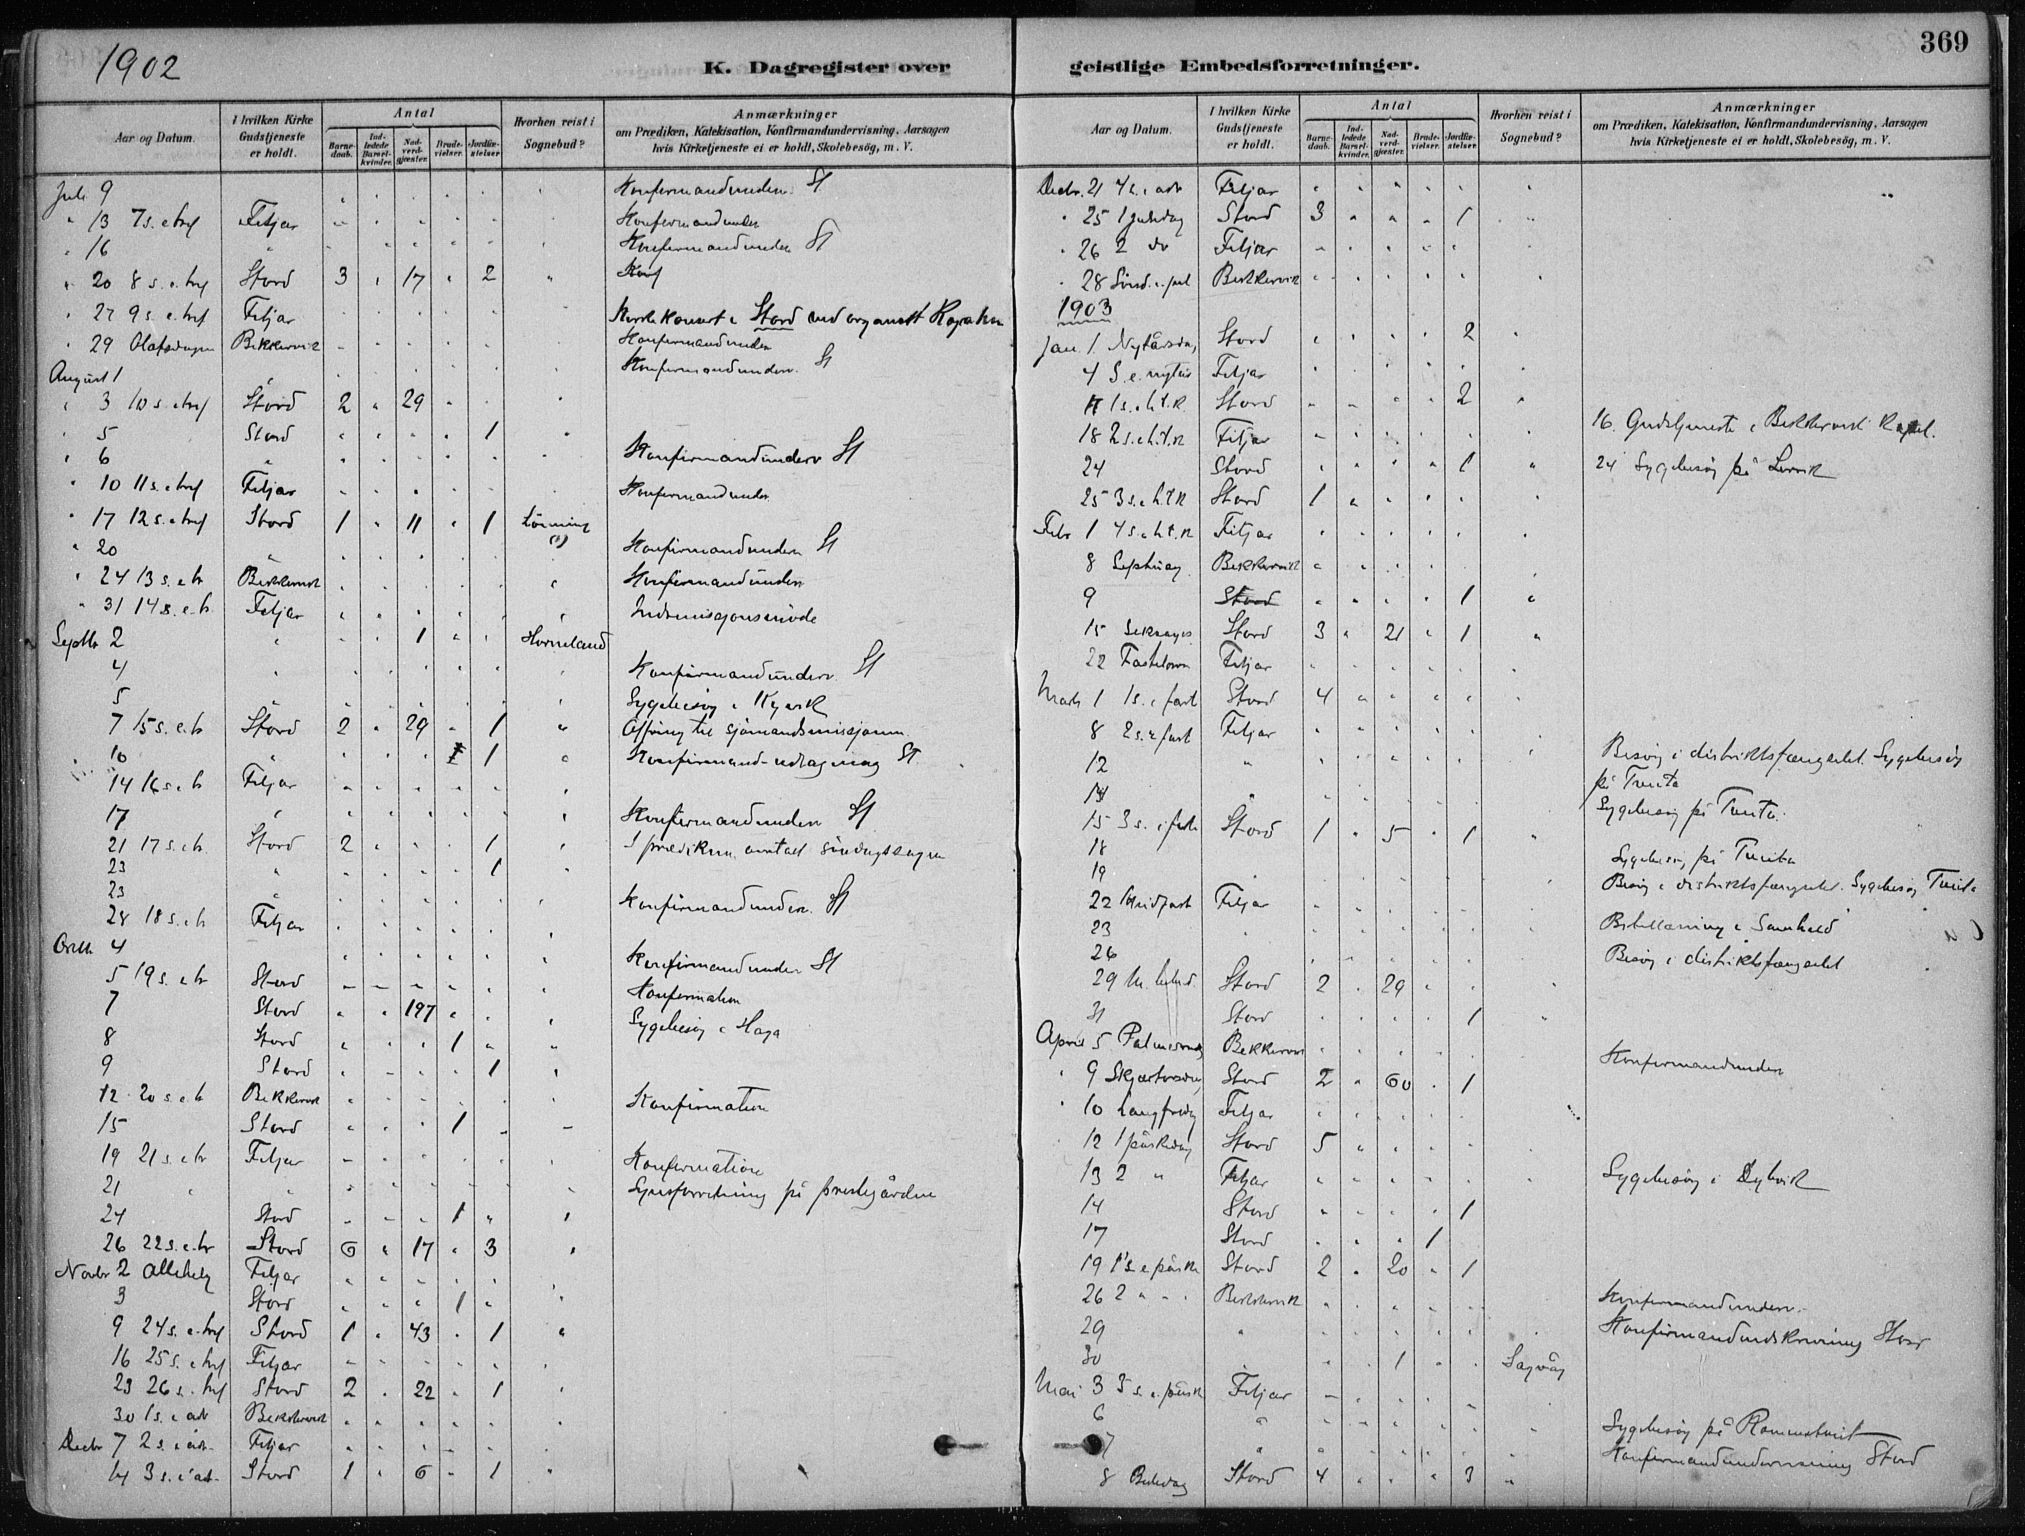 1902
K. Dagregister over
Aar og Datum.
I hvilken Kirke Gudstjeneste er holdt.
Antal
Barne-daab.
Ind-ledede Barsel-kvinder.
Nad-verd-gjæster.
Brude-vielser.
Jordfæ-stelser
Hvorhen reist i Sognebud?
Anmærkninger
om Prædiken, Katekisation, Konfirmandundervisning, Aarsagen
hvis Kirketjeneste ei er holdt, Skolebesög, m. V.
Juli 9 Konfirmandunderv. St
" 13 7 s. e tref Fitjar Konfirmandunderv
" 16 " Konfirmandunderv St
" 20 8 s. e. tref Stord 3 " 17 " 2 "
" 27 9 s. e. tref Fitjar Kirkekonsert i Stord ved organist
" 29 Olafsdagen Bekkervik Konfirmandunderv
August 1 Konfirmandunderv. St
" 3 10 s. e tref Stord 2 " 29
" 5 Stord 1
" 6 " Konfirmandunderv St
" 10 11 s. e tref Fitjar Konfirmandunderv
" 17 12 s. e tref Stord 1 " 11 " 1 Lönning
" 20 " Konfirmandunderv St
" 24 13 s. e tr Bekkervik Konfirmandunderv
" 31 14 s. e. tr. Fitjar Indremissjonsmöde
Septbr 2 " 1 Horneland
4 Konfirmandunderv. St
5 Sygebesög i
7 15 s. e. tr Stord 2 " 29 " 1 " Offring til sjömandsmissjonen
10 " 1 " Konfirmand-udtagning St.
14 16 s. e tr Fitjar
17 " Konfirmandunderv St
21 17 s. e tr. Stord 2 " " 1 I prædiken omtalt söndagssagen
23 " 1
23 " Konfirmandunderv. St
28 18 s. e tr Fitjar
Octbr 4 Konfirmandunderv St
5 19 s. e tr Stord Konfirmation
7 Stord 197 Sygebesög i Haga
8 Stord 1
9 Stord 1
12 20 s. e tr Bekkervik Konfirmation
15 Stord 1
19 21 s. e tr Fitjar Konfirmation
21 " Synsforretning på prestegården
24 Stord 1
26 22 s. e. tr Stord 6 " 17 " 3
Novbr 2 Allehelg Fitjar
3 Stord 1
9 24 s. e. tref Stord 1 " 43 " 1 "
16 25 s. e tref Fitjar
23 26 s. tref Stord 2 " 22 " 1
30 1 s. i adv Bekkervik
Decbr 7 2 s. i adv. Fitjar
14 3 s. i adv. Stord 1 " 6 " 1 "
369
geistlige Embedsforretninger.
Aar og Datum.
I hvilken Kirke Gudstjeneste er holdt.
Antal
Barne-daab.
Ind-ledede Barsel-kvinder.
Nad-verd-gjæster.
Brude-vielser.
Jordfæ-stelser
Hvorhen reist i Sognebud?
Anmærkninger
om Prædiken, Katekisation, Konfirmandundervisning, Aarsagen
hvis Kirketjeneste ei er holdt, Skolebesög, m. V.
Decbr. 21 4 s. i adv Fitjar
" 25 1 juledag Stord 3 " " " 1
" 26 2 do Fitjar
" 28 Sönd. e. jul Bekkervik
1903
Jan. 1. Nytårsdag Stord 2
4 S. e. nytår Fitjar
11 1 s. e h. t. k. Stord 2
16. Gudstjeneste i Bekkervik Kapel.
18 2 s. e h. t. k Fitjar
24 Stord 1 24 Sygebesög på Lervik
25 3 s. e h. t. k Stord 1
Febr 1 4 s. e h. t. k Fitjar
8 Septuag. Bekkervik
9 Stord 1
15 Seksages Stord 3 " 21 " 1
22 Fastelavn Fitjar
Marts 1 1 s. i fast Stord 4
8 2 s. i fast Fitjar
12 " Besög i distriktsfængslet. Sygebesög
på Tveita
14 " Sygebesög på Tveita.
15 3 s. i faste Stord 1 " 5 " 1
18 Sygebesög på Tveita
19 Besög i distriktsfængslet. Sygebesög Tveita
22 Midfast Fitjar
23 Bibellæsning i Samhold
26 Besög i distriktsfængslet
29 M. bebud. Stord 2 " 29
31 Stord 1
April 5 Palmesöndag Bekkervik Konfirmandunderv
" 9 Skjærtorsdag Stord 2 " 60 " 1
" 10 Langfredag Fitjar
12 1 påskedag Stord 5
13 2 " Fitjar Sygebesög i Dybvik
14 Stord 1
17 Stord 1
19 1 s. e påske Stord 2 " 20 " 1
26 2 " " Bekkervik Konfirmandunderv.
29 " Konfirmandindskrivning Stord
30 1 Sagvåg
Mai 3 3 s. e. påsk Fitjar
6 " Sygebesög på
7 Konfirmandundervisning Stord
8 Bededag Stord 4 " " " 3 "